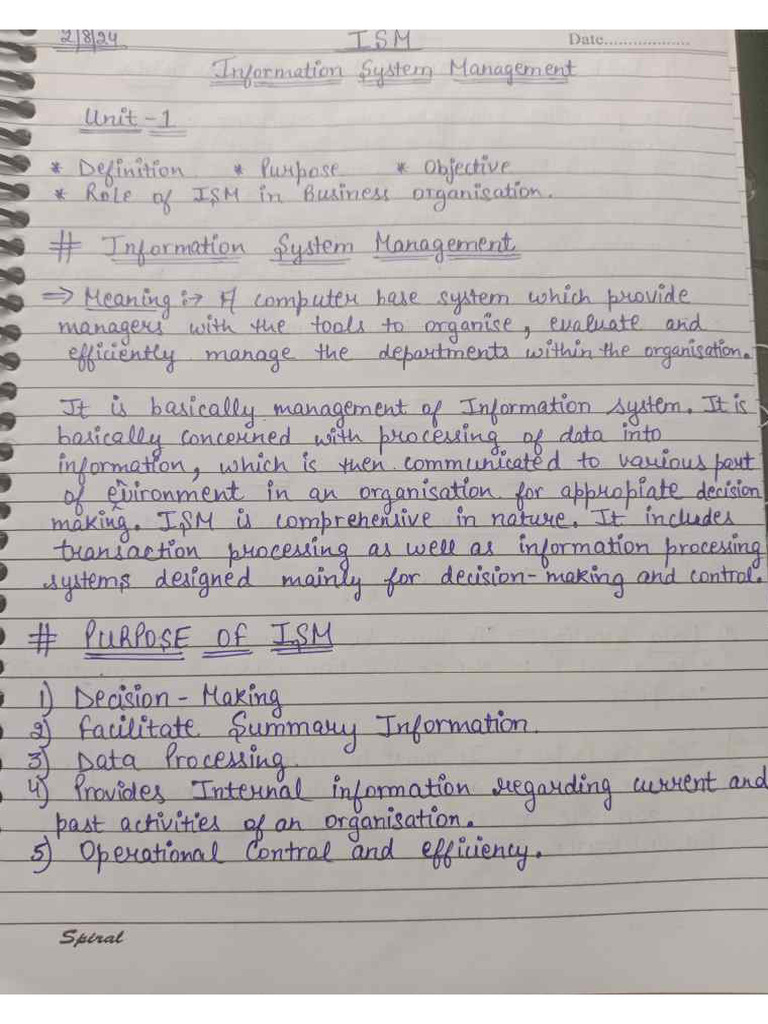 2/8/24 ISM Date..................
Information System Management
Unit - 1
* Definition * Purpose * Objective
* Role of ISM in Business organisation.
# Information System Management
⇒ Meaning :→ A computer base system which provide
managers with the tools to organise, evaluate and
efficiently manage the departments within the organisation.
It is basically management of Information system. It is
basically concerned with processing of data into
information, which is then communicated to various part
of environment in an organisation for appropiate decision
making. ISM is comprehensive in nature. It includes
transaction processing as well as information processing
systems designed mainly for decision-making and control.
# PURPOSE OF ISM
1) Decision - Making
2) Facilitate Summary Information.
3) Data Processing.
4) Provides Internal information regarding current and
past activities of an organisation.
5) Operational Control and efficiency.
Spiral